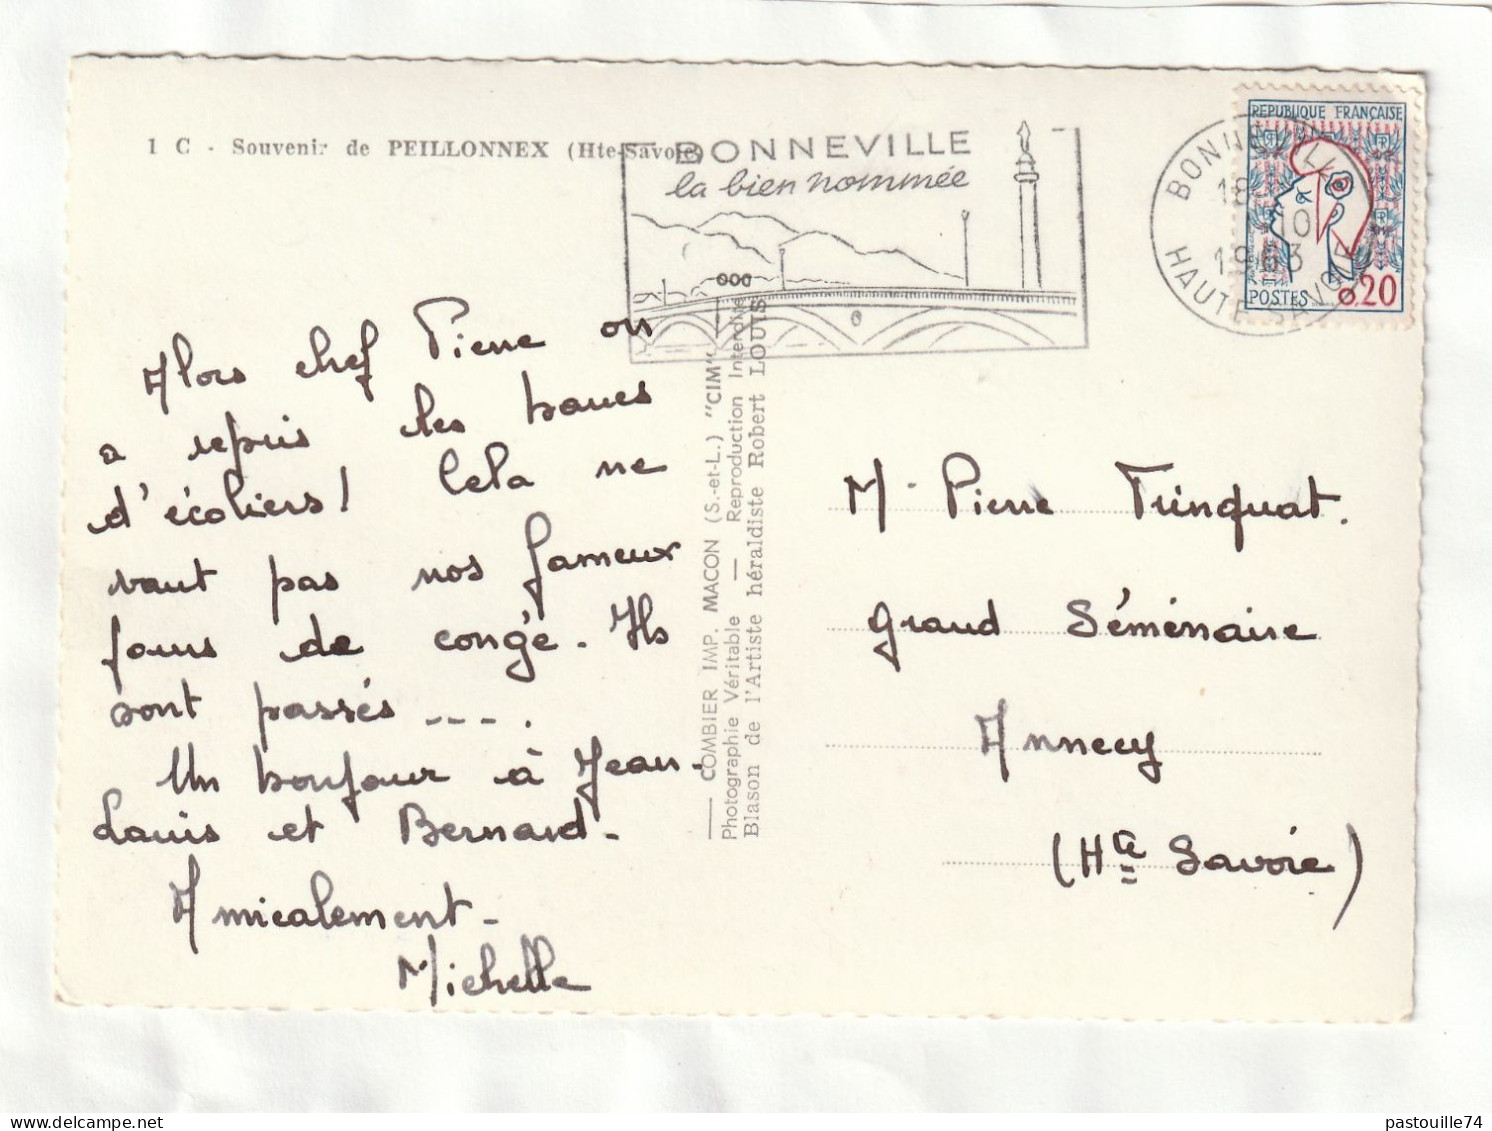 1 C - Souvenir de PEILLONNEX (Hte-Savoie)
BONNEVILLE
la bien nommée
BONNEVILLE
18
10
1963
HAUTE-SAVOIE
REPUBLIQUE FRANÇAISE
POSTES 0,20
Alors chef Pierre on
a repris les bancs
d'écoliers! Cela ne
vaut pas nos fameux
jours de congé. Ils
sont passés ----.
Un bonjour à Jean-
Louis et Bernard-
Amicalement-
Michelle
COMBIER IMP. MACON (S.-et-L.) "CIM"
Photographie Véritable — Reproduction Interdite
Blason de l'Artiste héraldiste Robert LOUIS
M. Pierre Trinquat.
Grand Séminaire
Annecy
(Hte Savoie)
pastouille74